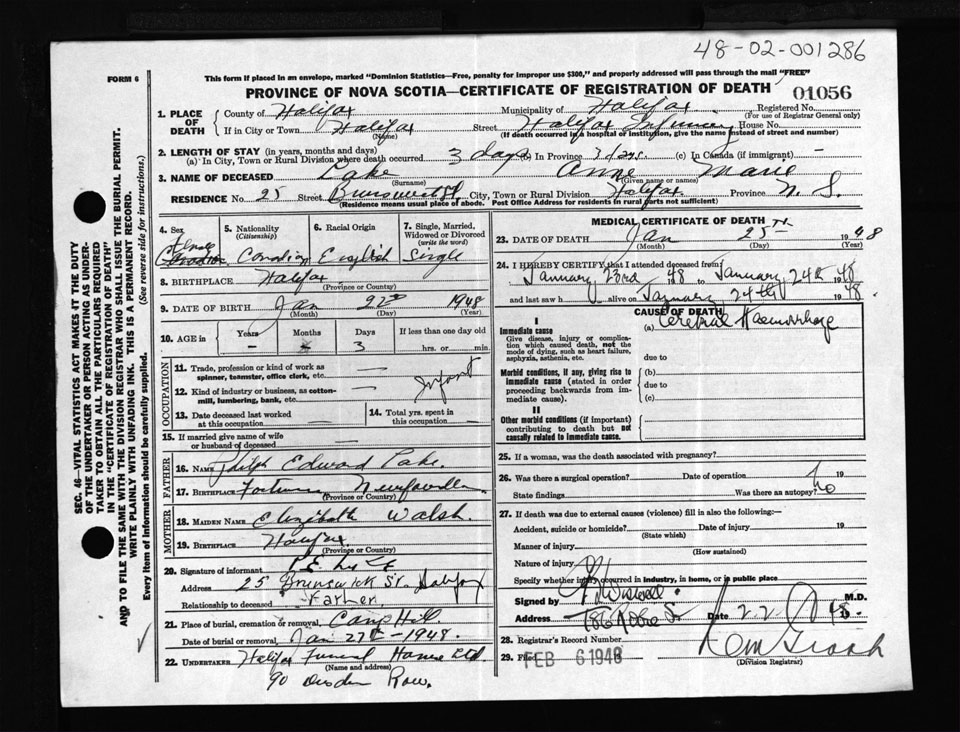 48-02-001286
FORM 6
This form if placed in an envelope, marked "Dominion Statistics—Free, penalty for improper use $300," and properly addressed will pass through the mail "FREE"
PROVINCE OF NOVA SCOTIA—CERTIFICATE OF REGISTRATION OF DEATH
01056
1. PLACE OF DEATH
County of Halifax
Municipality of Halifax
Registered No.
(For use of Registrar General only)
If in City or Town Halifax
(Name)
Street Halifax Infirmary House No.
(If death occurred in a hospital or institution, give the name instead of street and number)
2. LENGTH OF STAY (in years, months and days)
(a) In City, Town or Rural Division where death occurred 3 days (b) In Province 3 days. (c) In Canada (if immigrant) —
3. NAME OF DECEASED Lake Anne Marie
(Surname) (Given name or names)
RESIDENCE No. 25 Street Brunswick St. City, Town or Rural Division Halifax Province N. S.
(Residence means usual place of abode. Post Office Address for residents in rural parts not sufficient)
4. Sex
Female
5. Nationality
(Citizenship)
Canadian
6. Racial Origin
English
7. Single, Married, Widowed or Divorced
(write the word)
Single
8. BIRTHPLACE Halifax
(Province or Country)
9. DATE OF BIRTH Jan 22nd 1948
(Month) (Day) (Year)
10. AGE in
Years Months Days If less than one day old
— 3 hrs. or min.
OCCUPATION
11. Trade, profession or kind of work as spinner, teamster, office clerk, etc. —
12. Kind of industry or business, as cotton-mill, lumbering, bank, etc. —
Infant
13. Date deceased last worked at this occupation
14. Total yrs. spent in this occupation
15. If married give name of wife or husband of deceased
FATHER
16. NAME Philip Edward Lake.
17. BIRTHPLACE Fortune Newfoundlan
(Province or Country)
MOTHER
18. MAIDEN NAME Elizabeth Walsh.
19. BIRTHPLACE Halifax
(Province or Country)
20. Signature of informant
Address 25 Brunswick St. Halifax
Relationship to deceased Father.
21. Place of burial, cremation or removal, Camp Hill.
Date of burial or removal, Jan 27th — 1948.
22. UNDERTAKER Halifax Funeral Home Ltd.
(Name and address)
90 Row.
MEDICAL CERTIFICATE OF DEATH
23. DATE OF DEATH Jan 25TH 1948
(Month) (Day) (Year)
24. I HEREBY CERTIFY that I attended deceased from
January 23rd 48 to January 24th 48
and last saw h alive on January 24th 1948.
CAUSE OF DEATH
I
Immediate cause
Give disease, injury or complication which caused death, not the mode of dying, such as heart failure, asphyxia, asthenia, etc.
(a) Cerebral Haemorrhage
due to
Morbid conditions, if any, giving rise to immediate cause (stated in order proceeding backwards from immediate cause).
(b)
due to
(c)
II
Other morbid conditions (if important) contributing to death but not causally related to immediate cause.
25. If a woman, was the death associated with pregnancy?
26. Was there a surgical operation? Date of operation 19
State findings Was there an autopsy? no
27. If death was due to external causes (violence) fill in also the following:—
Accident, suicide or homicide? Date of injury 19
(State which)
Manner of injury
(How sustained)
Nature of injury
Specify whether injury occurred in industry, in home, or in public place
Signed by M.D.
Address 186 St. Date
28. Registrar's Record Number
29. Filed FEB 6 1948
(Division Registrar)
SEC. 46—VITAL STATISTICS ACT MAKES IT THE DUTY OF THE UNDERTAKER OR PERSON ACTING AS UNDERTAKER TO OBTAIN ALL THE PARTICULARS REQUIRED IN THE "CERTIFICATE OF REGISTRATION OF DEATH" AND TO FILE THE SAME WITH THE DIVISION REGISTRAR WHO SHALL ISSUE THE BURIAL PERMIT.
WRITE PLAINLY WITH UNFADING INK. THIS IS A PERMANENT RECORD.
Every item of Information should be carefully supplied. (See reverse side for instructions.)